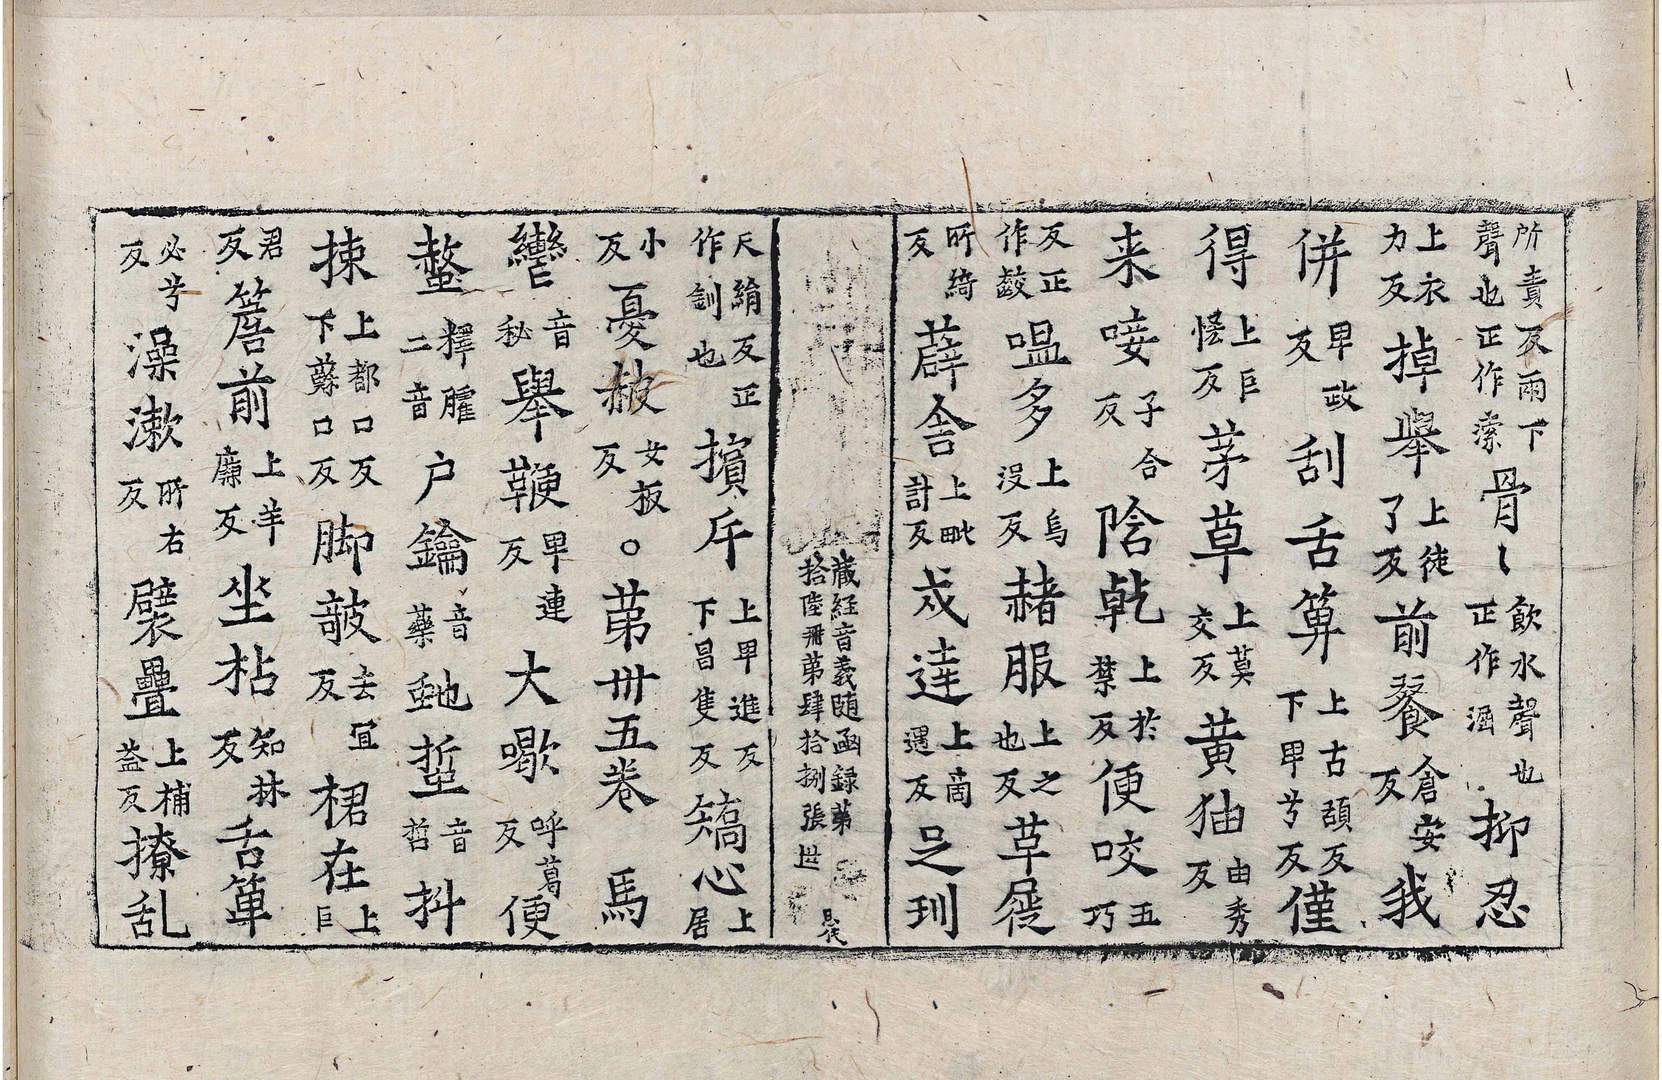 所責反雨下聲也正作溹骨〻飲水聲也正作𣹢抑忍
上衣力反掉舉上徒了反前餐倉安反我
併畀政反刮舌箅上古頡反下畀兮反僅
得上巨恡反茅草上莫交反黃㹨由秀反
来唼子合反陰乾上於禁反便咬五巧
反正作齩嗢多上烏没反赭服上之也反草屣
所綺反薜舍上毗計反戍達上商遇反足玔
藏經音義随函録第拾陸冊第肆拾捌張 昆
天絹反正作釧也擯斥上畀進反下昌隻反矯心上居
小反憂赧女板反。第卅五卷 馬
轡音秘舉鞭畀連反大㗿呼葛反便
螫釋臛二音户鑰音藥虵蜇音哲抖
捒上都口反下蘇口反脚㪣去宜反桾在上巨
君反簷前上羊廉反坐枮知林反舌箄
必兮反澡漱所右反襞疊上補益反撩乱